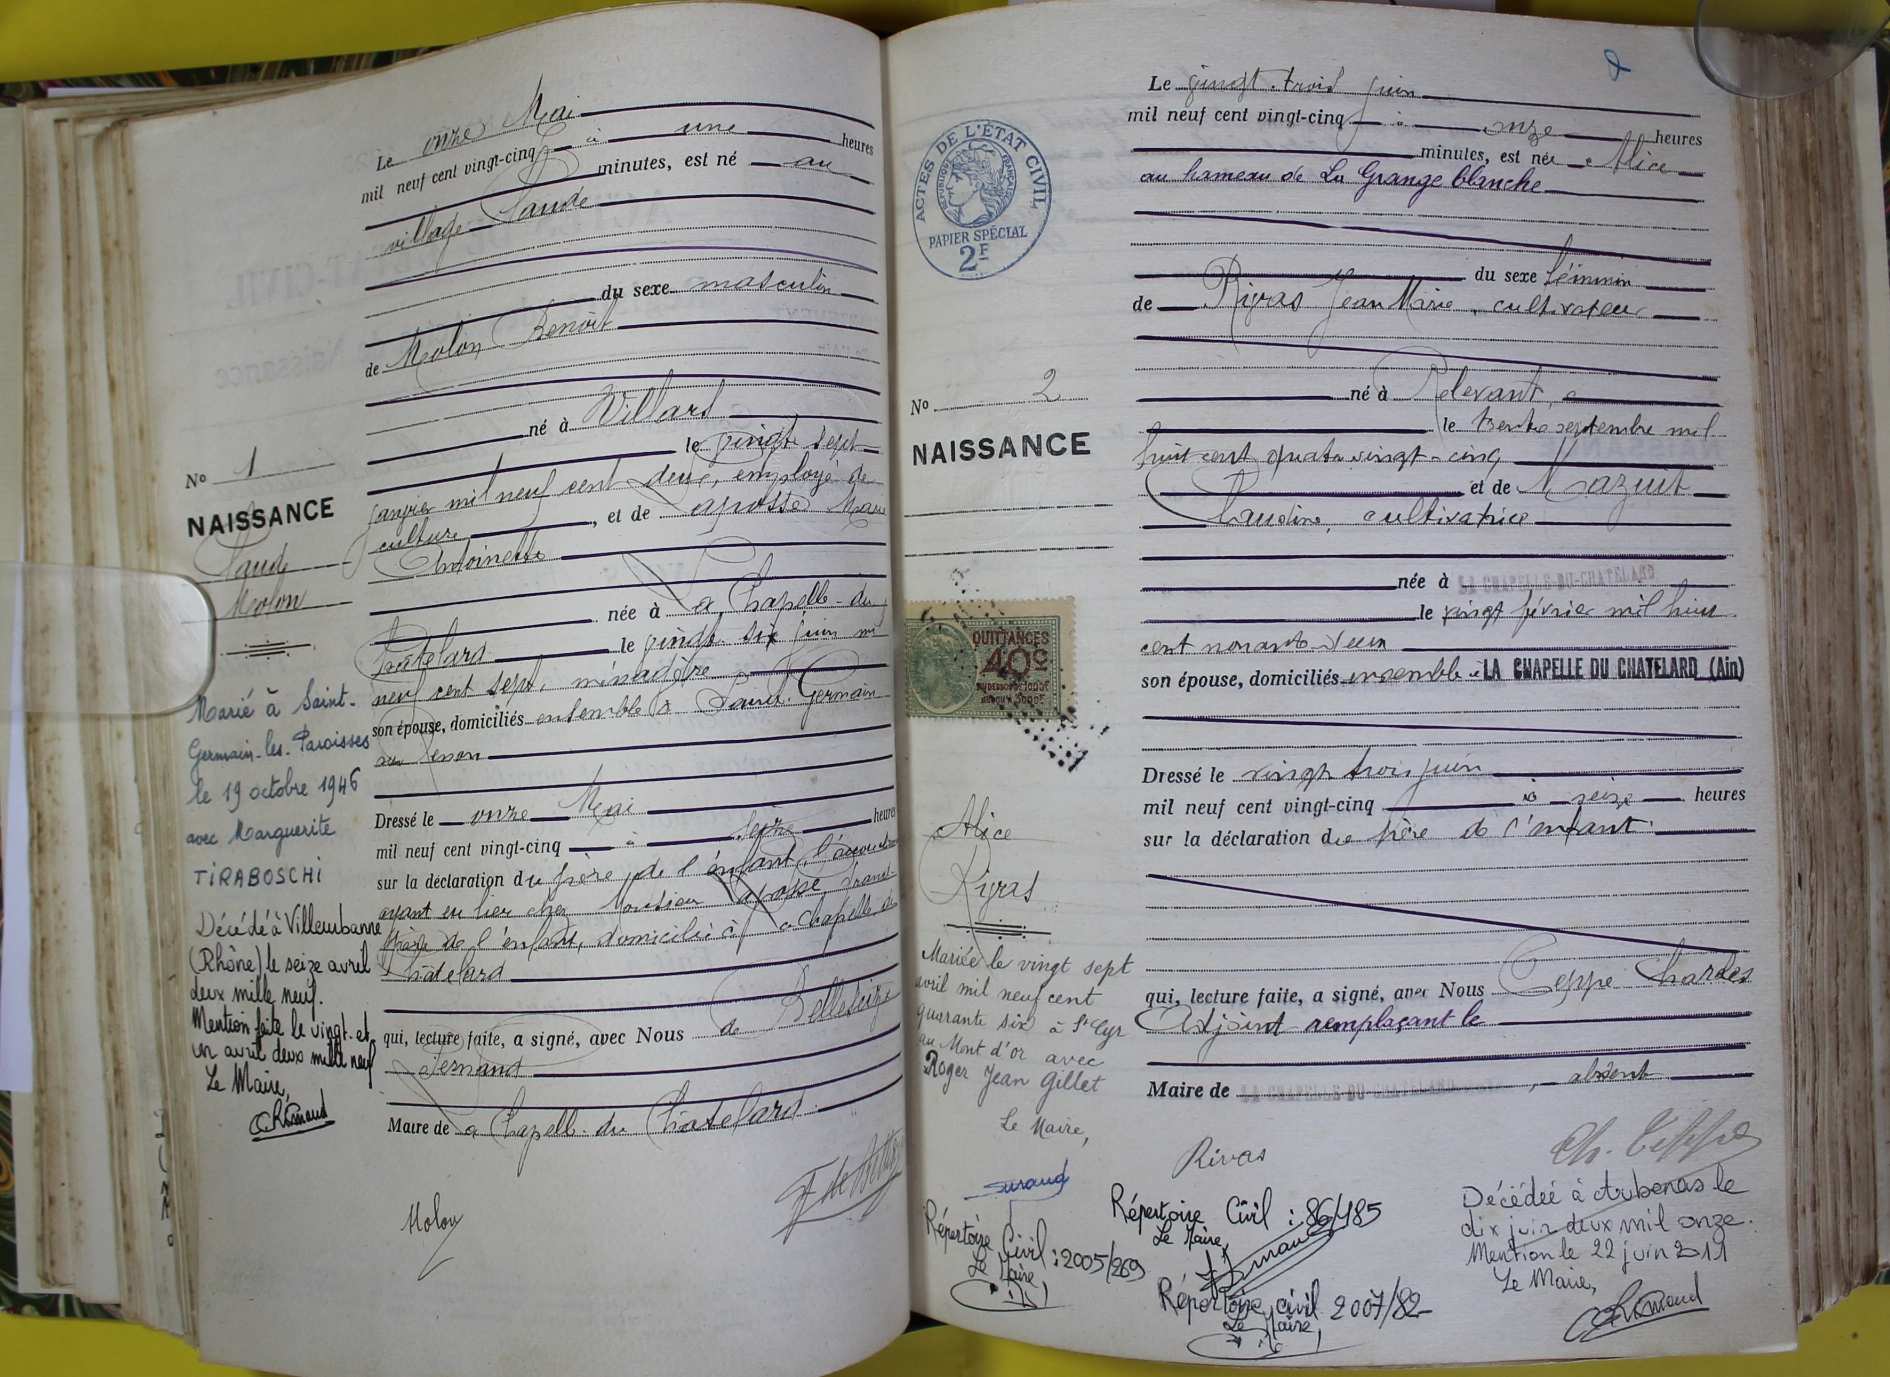 Le onze Mai
mil neuf cent vingt-cinq à une heures
minutes, est né au
village Claude
du sexe masculin
de Molon Benoît
né à Villars
le vingt sept
janvier mil neuf cent deux, employé de
culture, et de Laposse Marie
Antoinette
née à La Chapelle-du
Chatelard le vingt six juin mil
neuf cent sept, ménagère
son épouse, domiciliés ensemble à Saint-Germain
sur Renon
Dressé le onze Mai
mil neuf cent vingt-cinq à seize heures
sur la déclaration du père de l'enfant, l'accouchement
ayant eu lieu chez Monsieur Laposse, Grand
père de l'enfant, domicilié à La Chapelle du
Chatelard
qui, lecture faite, a signé, avec Nous de Bellescize
Fernand
Maire de La Chapelle-du Chatelard
Molon
No 1
NAISSANCE
Claude
Molon
Marié à Saint-
Germain-les-Paroisses
le 19 octobre 1946
avec Marguerite
TIRABOSCHI
Décédé à Villeurbanne
(Rhône) le seize avril
deux mille neuf.
Mention faite le vingt-et
un avril deux mille neuf
Le Maire,
ACTES DE L'ÉTAT CIVIL
RÉPUBLIQUE FRANÇAISE
PAPIER SPÉCIAL
2F
Le vingt-trois juin
mil neuf cent vingt-cinq à onze heures
minutes, est née Alice
au hameau de La Grange blanche
du sexe féminin
de Rivas Jean Marie, cultivateur
né à Relevant,
le trente septembre mil
huit cent quatre vingt-cinq
et de Mazuit
Claudine, cultivatrice
née à LA CHAPELLE-DU-CHATELARD
le vingt février mil huit
cent nonante-deux
son épouse, domiciliés ensemble à LA CHAPELLE DU CHATELARD (Ain)
Dressé le vingt trois juin
mil neuf cent vingt-cinq à seize heures
sur la déclaration du père de l'enfant.
qui, lecture faite, a signé, avec Nous Teppe Charles
Adjoint remplaçant le
Maire de LA CHAPELLE-DU-CHATELARD, absent
Rivas
Ch. Teppe
No 2
NAISSANCE
QUITTANCES
40c
Alice
Rivas
Mariée le vingt sept
avril mil neuf cent
quarante six à St Cyr
au Mont d'or avec
Roger Jean Gillet
Le Maire,
Répertoire Civil : 2005/269
Le Maire,
Répertoire Civil : 86/485
Le Maire,
Répertoire civil 2007/82
Le Maire,
Décédée à Aubenas le
dix juin deux mil onze.
Mention le 22 juin 2011
Le Maire,